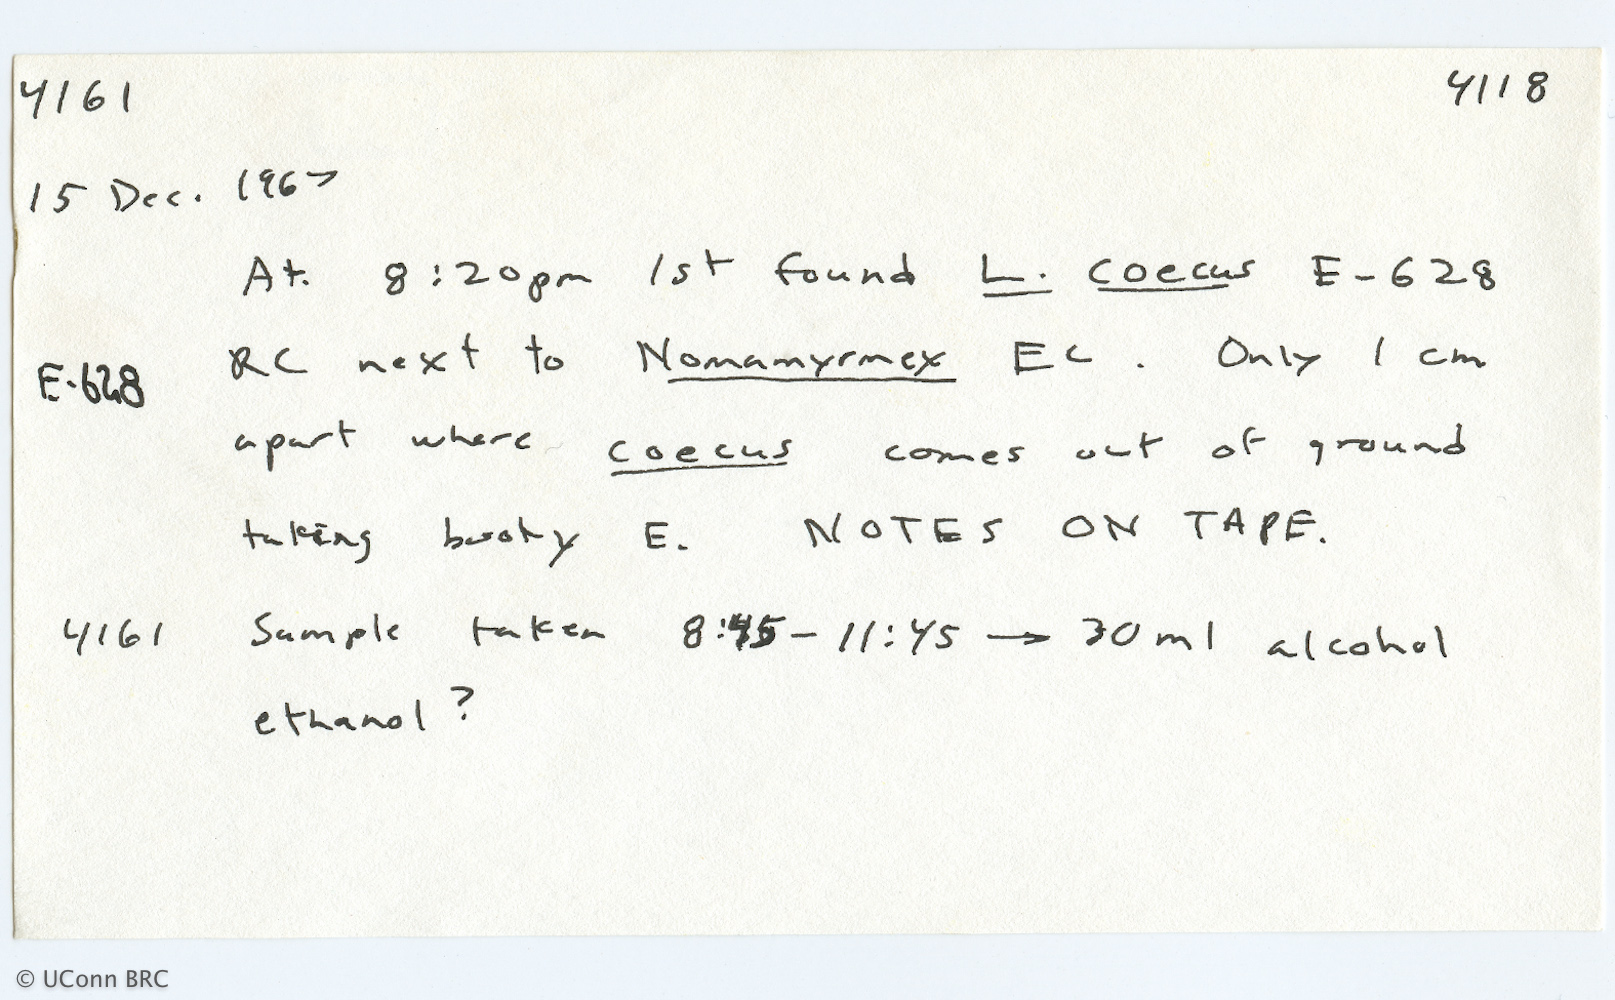 4161 4118
15 Dec. 1967
At 8:20pm 1st found L. coecus E-628
E-628 RC next to Nomamyrmex EC. Only 1 cm
apart where coecus comes out of ground
taking booty E. NOTES ON TAPE.
4161 Sample taken 8:45-11:45 → 30ml alcohol
ethanol?
© UConn BRC